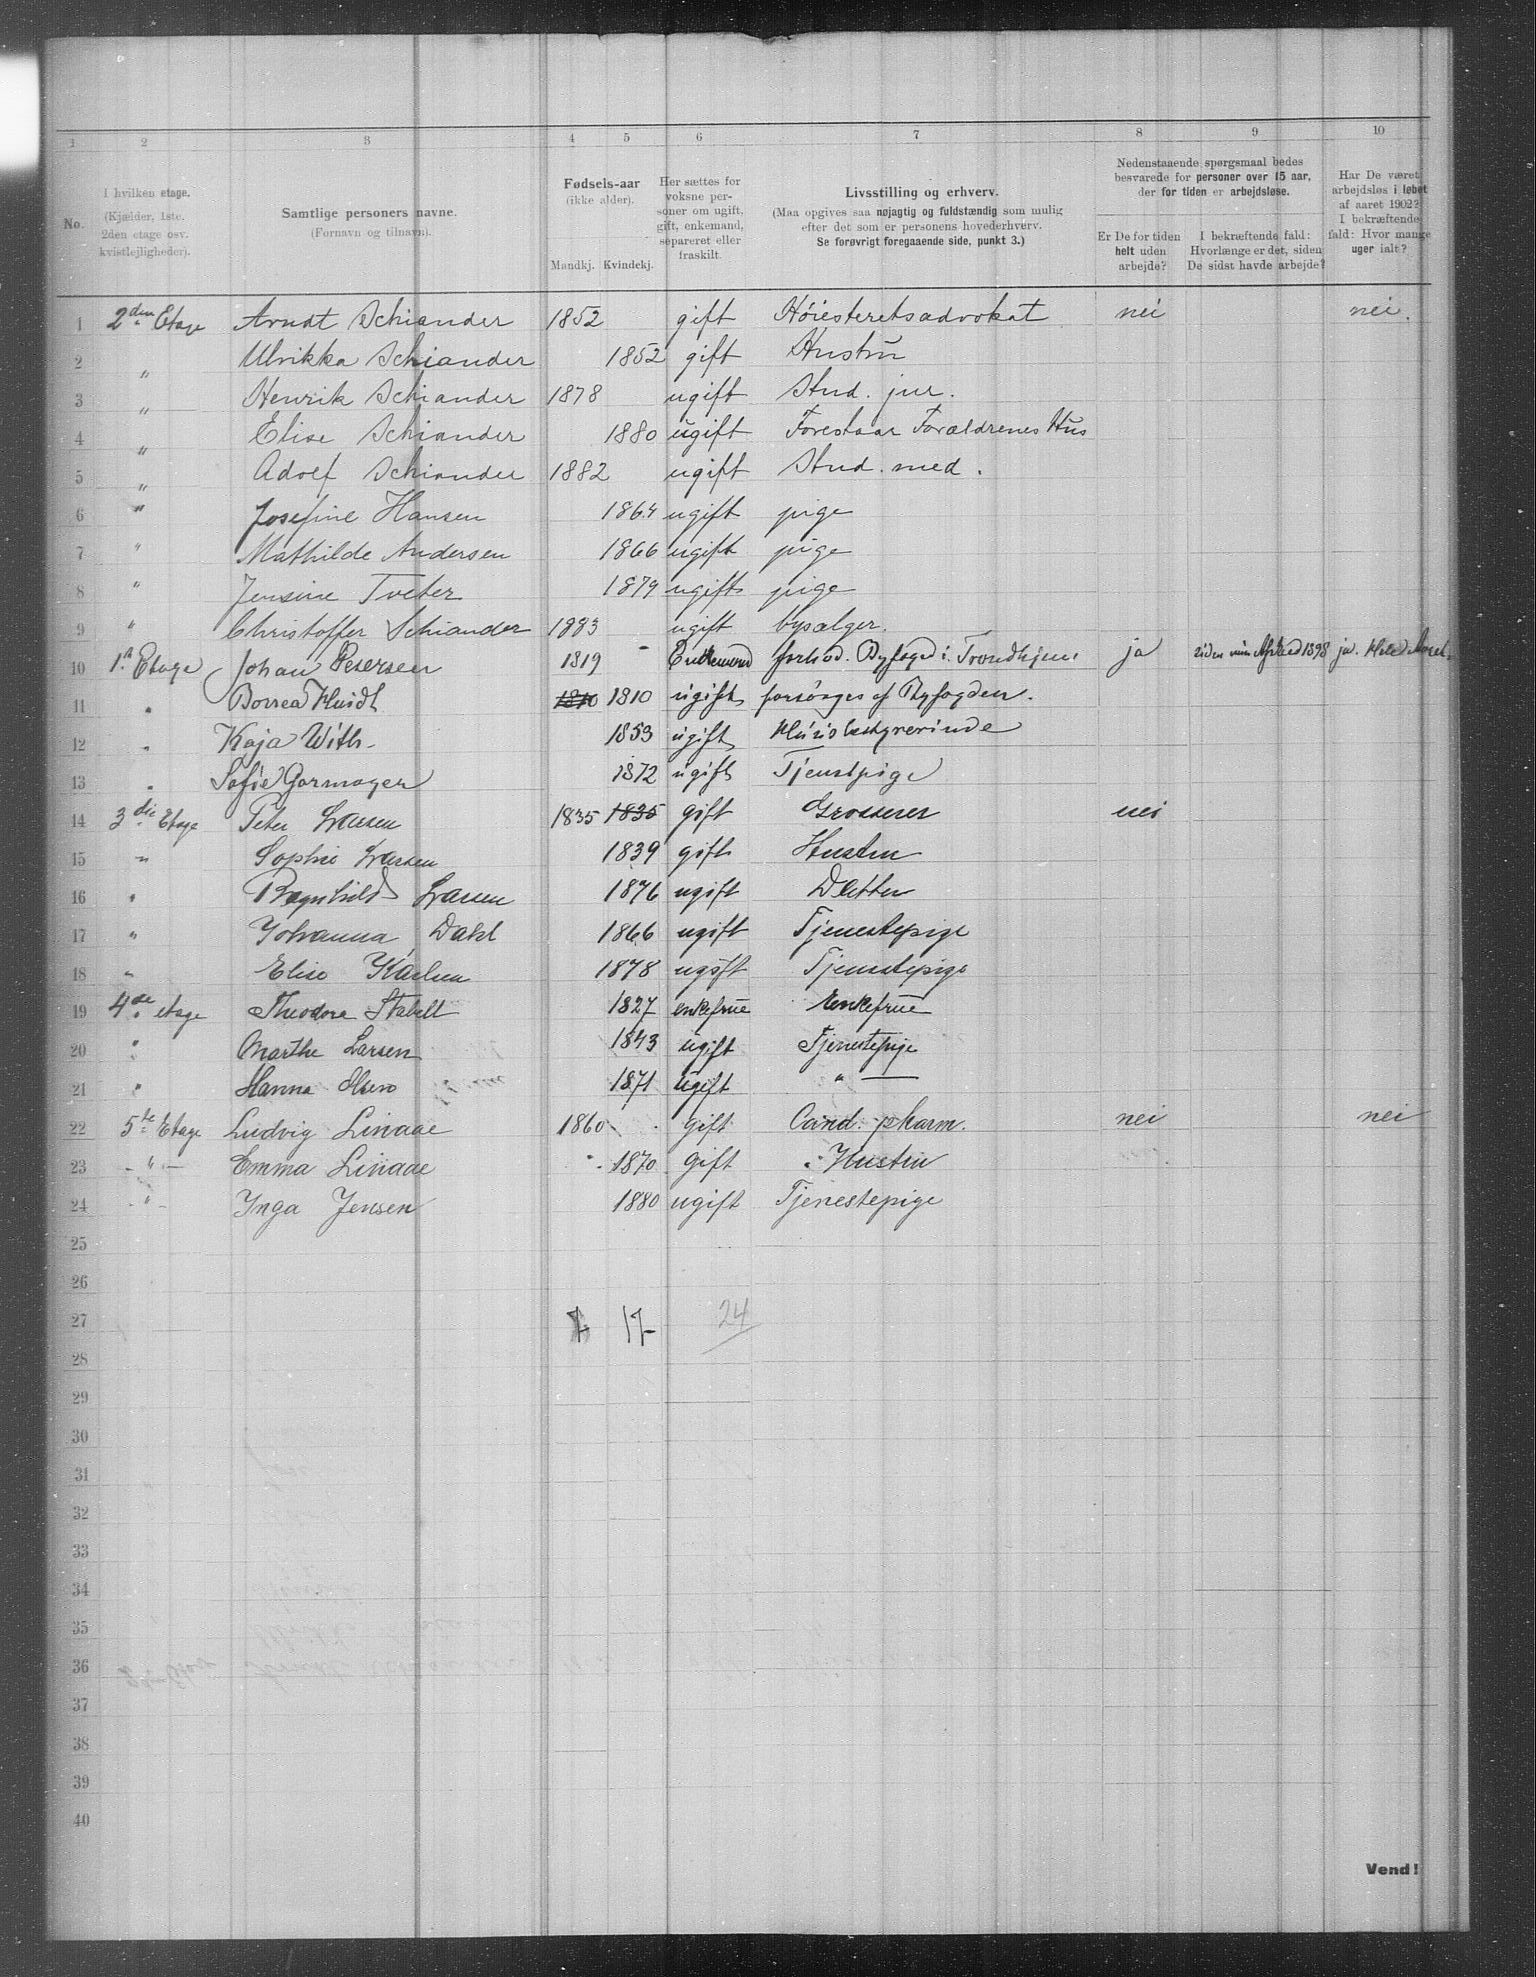 1 2 3 4 5 6 7 8 9 10
No.
I hvilken etage.
(Kjælder, 1ste.
2den etage osv.
kvistlejligheder).
Samtlige personers navne.
(Fornavn og tilnavn).
Fødsels-aar
(ikke alder).
Mandkj. Kvindekj.
Her sættes for
voksne per-
soner om ugift,
gift, enkemand,
separeret eller
fraskilt.
Livsstilling og erhverv.
(Maa opgives saa nøjagtig og fuldstændig som mulig
efter det som er personens hovederhverv.
Se forøvrigt foregaaende side, punkt 3.)
Nedenstaaende spørgsmaal bedes
besvarede for personer over 15 aar,
der for tiden er arbejdsløse.
Er De for tiden
helt uden
arbejde?
I bekræftende fald:
Hvorlænge er det, siden
De sidst havde arbejde?
Har De været
arbejdsløs i løbet
af aaret 1902?
I bekræftende
fald: Hvor mange
uger ialt?
1 2den Etage Arndt Schiander 1852 gift Höiesteretsadvokat nei nei.
2 " Ulrikka Schiander 1852 gift Hustru
3 " Henrik Schiander 1878 ugift Stud. jur.
4 " Elise Schiander 1880 ugift Forestaar Forældrenes Hus
5 " Adolf Schiander 1882 ugift Stud. med.
6 " Josefine Hansen 1864 ugift pige
7 " Mathilde Andersen 1866 ugift pige
8 " Jensine Tveter 1879 ugift pige
9 " Christoffer Schiander 1883 ugift bysælger.
10 1. Etage Johan 1819 Enkemand Byfoged i Trondhjem ja siden min Afsked 1898 ja.
11 " 1810 1810 ugift forsörges af Byfogden.
12 " Kaja With. 1853 ugift Husbestyrerinde
13 " Sofie Garmager 1872 ugift Tjenstpige
14 3die Etage Peter Larsen 1835 1835 gift Grosserer nei
15 " Sophie Larsen 1839 gift Hustru
16 " Ragnhild Larsen 1876 ugift Datter
17 " Johanna Dahl 1866 ugift Tjenestepige
18 " Elise Karlsen 1878 ugift Tjenestepige
19 4de etage Theodora Stabell 1827 enkefrue Enkefrue
20 " Marthe Larsen 1843 ugift Tjenestepige
21 " Hanna Olsen 1871 ugift " —
22 5te Etage Ludvig Linaae 1860 gift Cand. pharm. nei nei
23 - " - Emma Linaae 1870 gift Hustru
24 " Inga Jensen 1880 ugift Tjenestepige
25
26
27 7 17 24
28
29
30
31
32
33
34
35
36
37
38
39
40
Vend!